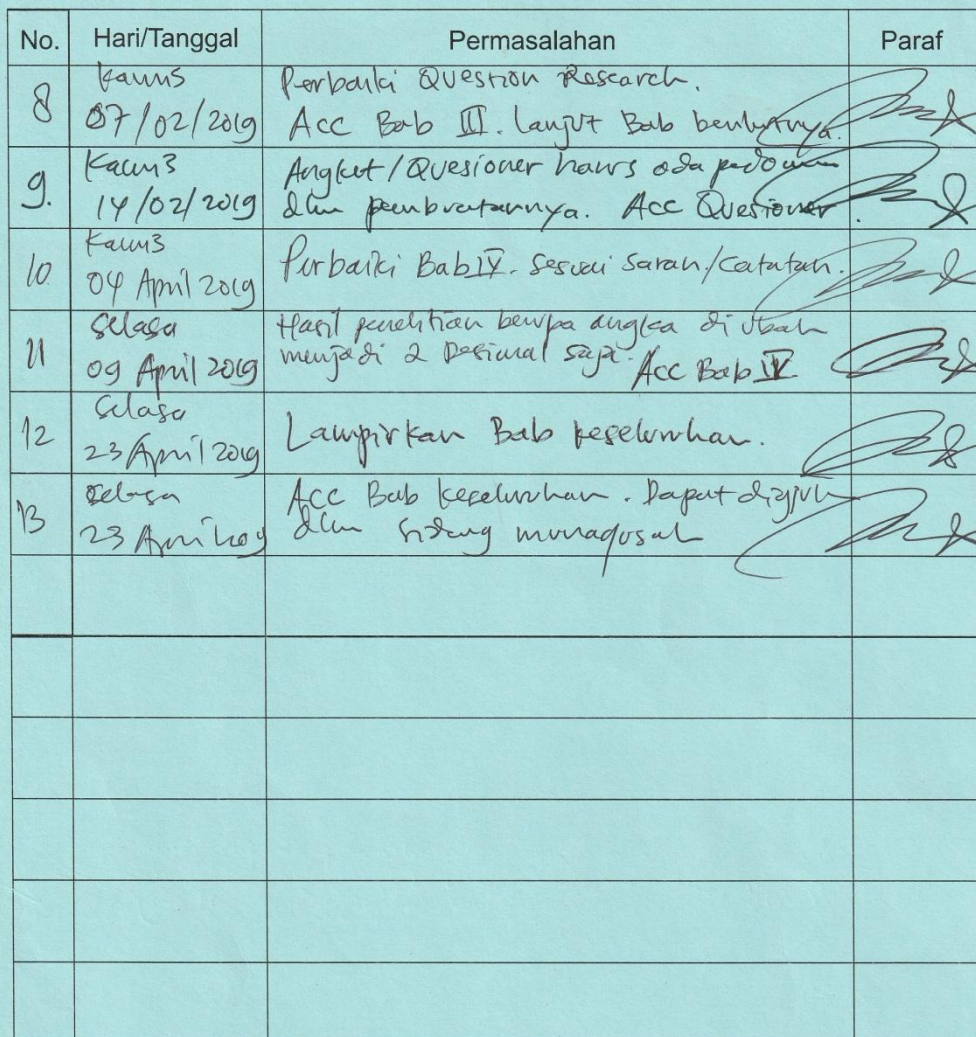 No. Hari/Tanggal Permasalahan Paraf
8 Kamis Perbaiki Question Research.
07/02/2019 Acc Bab III. lanjut Bab berikutnya.
9. Kamis Angket/Quesioner harus ada pedoman
14/02/2019 dlm pembuatannya. Acc Quesioner.
10 Kamis
04 April 2019 Perbaiki Bab IV. Sesuai Saran/Catatan.
11 Selasa Hasil penelitian berupa angka di ubah
09 April 2019 menjadi 2 Desimal saja. Acc Bab IV
12 Selasa
23 April 2019 Lampirkan Bab keseluruhan.
13 Selasa Acc Bab keseluruhan. Dapat diajukan
23 April 2019 dlm sidang munaqosah